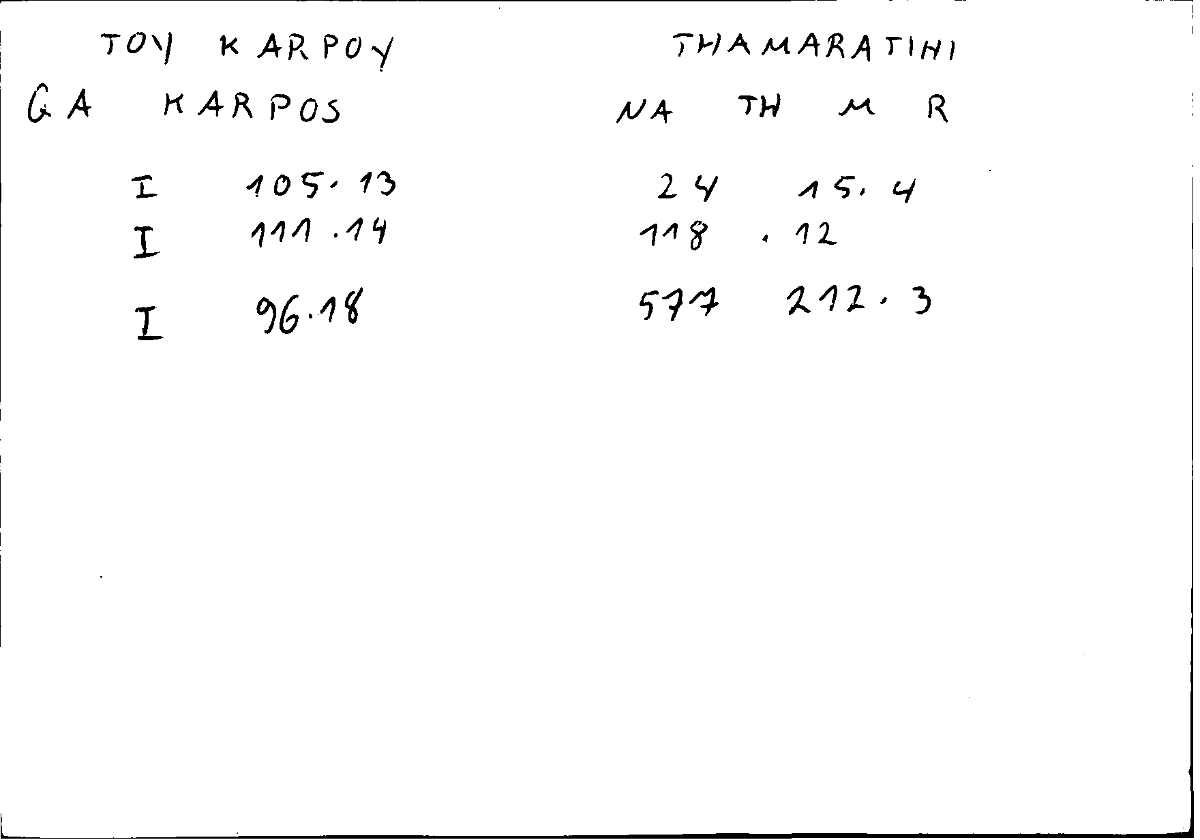 TOY KARPOY THAMARATIHI
GA KARPOS NA TH M R
I 105.13 24 15.4
I 111.14 118 .12
I 96.18 577 212.3